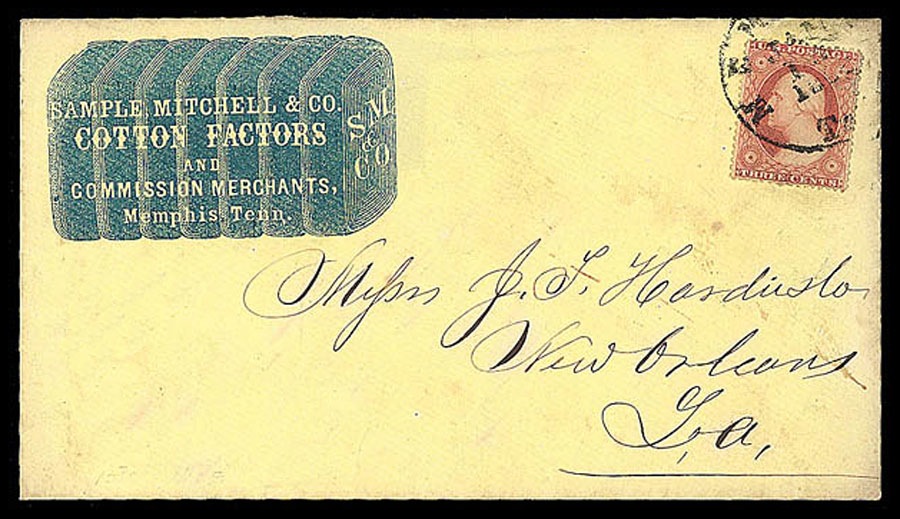 SAMPLE, MITCHELL & CO.
COTTON FACTORS
AND
COMMISSION MERCHANTS,
Memphis, Tenn.
S.M.
&
CO
U.S. POSTAGE
THREE CENTS
Messrs J. F.
New Orleans
La,